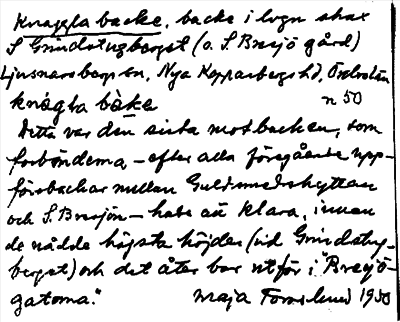 Knaggla backe, backe i vägen strax
S Grindstugberget (o. S. Bresjö gård)
Ljusnarsberg sn, Nya Kopparbergs hd, Örebro län
knàgla bàke n 50
Detta var den sista motbacken, som
forbönderna – efter alla föregående upp-
försbackar mellan Guldsmedshyttan
och S. Bresjön – hade att klara, innan
de nådde högsta höjden (vid Grindstug-
berget) och det åter bar utför i "Bresjö-
gatorna." Maja 1950